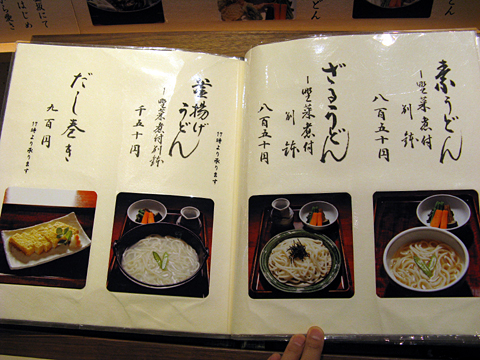 素うどん
一野菜煮付
別鉢
八百五十円
ざるうどん
一野菜煮付
別鉢
八百五十円
釜揚げうどん
一野菜煮付別鉢
千五十円
17時より承ります
だし巻き
九百円
17時より承ります